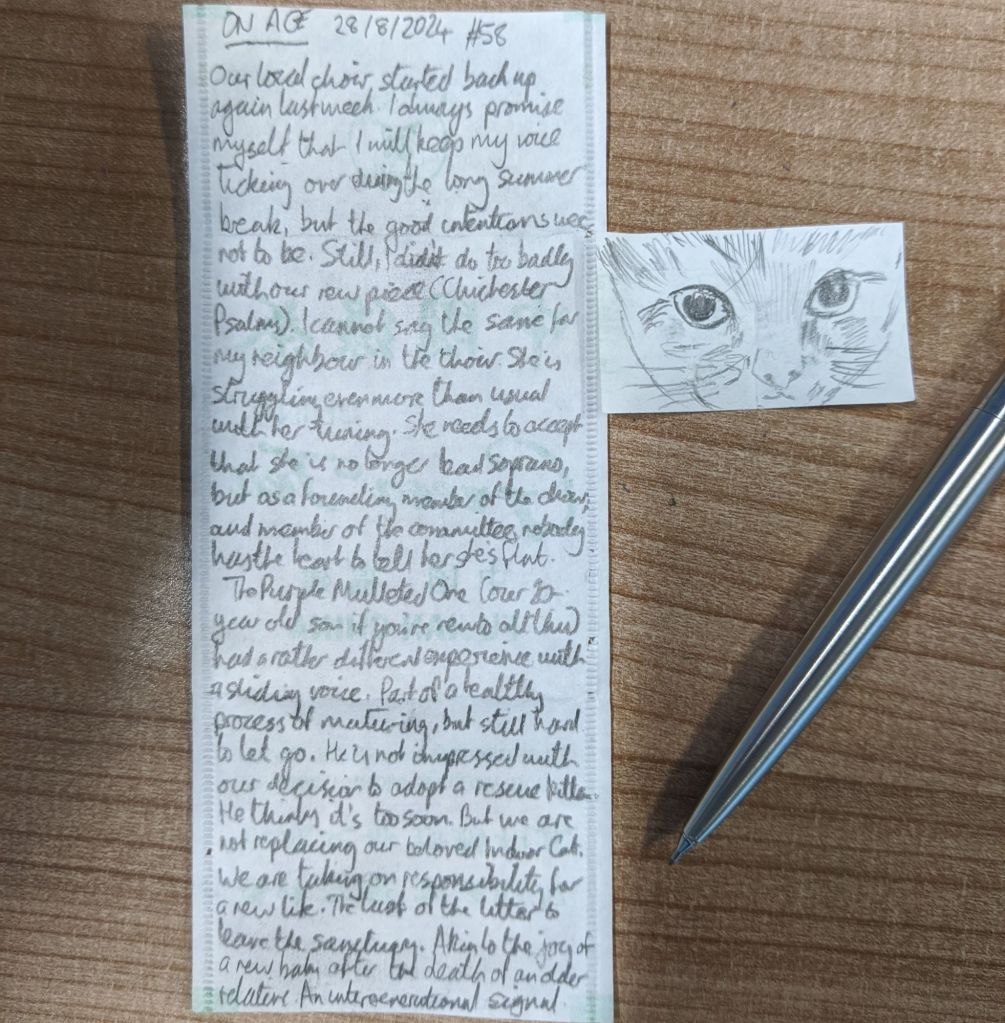 ON AGE 28/8/2024 #58
Our local choir started back up
again last week. I always promise
myself that I will keep my voice
ticking over during the long summer
break, but the good intentions were
not to be. Still, I didn't do too badly
with our new piece (Chichester
Psalms). I cannot say the same for
my neighbour in the choir. She is
struggling even more than usual
with her tuning. She needs to accept
that she is no longer lead soprano,
but as a founding member of the choir,
and member of the committee, nobody
has the heart to tell her she's flat.
The Purple Mulleted One (our 20-
year old son if you're new to all this)
had a rather different experience with
a sliding voice. Part of a healthy
process of maturing, but still hard
to let go. He is not impressed with
our decision to adopt a rescue kitten.
He thinks it's too soon. But we are
not replacing our beloved Indoor Cat.
We are taking on responsibility for
a new life. The last of the litter to
leave the sanctuary. Akin to the joy of
a new baby after the death of an older
relative. An intergenerational signal.